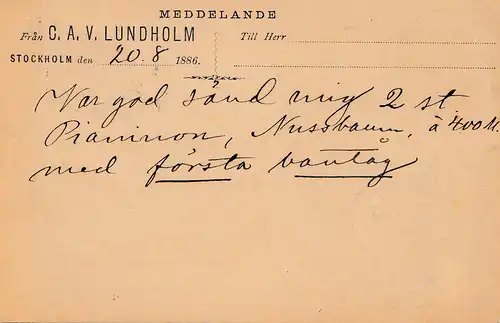 MEDDELANDE
Från C. A. V. LUNDHOLM Till Herr
STOCKHOLM den 20.8 1886.
Var god sänd mig 2 st.
Pianinon, Nussbaum, à 400 M.
med första bantåg